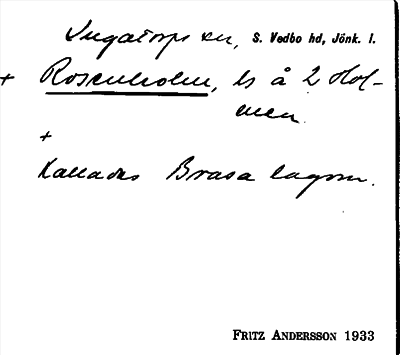 Ingatorps sn, S. Vedbo hd, Jönk. l.
+ Rosenholm, ls å 2 Hol-
men.
+
Kallades Brasa lugnn.
FRITZ ANDERSSON 1933